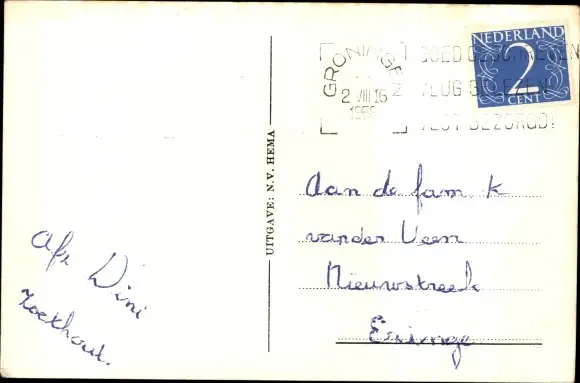 NEDERLAND
2
CENT
GRONINGEN
2 VIII 16
1958
2
GOED GESCHREVEN
VLUG GELEZEN
VLOT BEZORGD!
UITGAVE: N.V. HEMA
Aan de fam. K
van der Veen
Nieuwstreek
Ezinge
Afz Dini